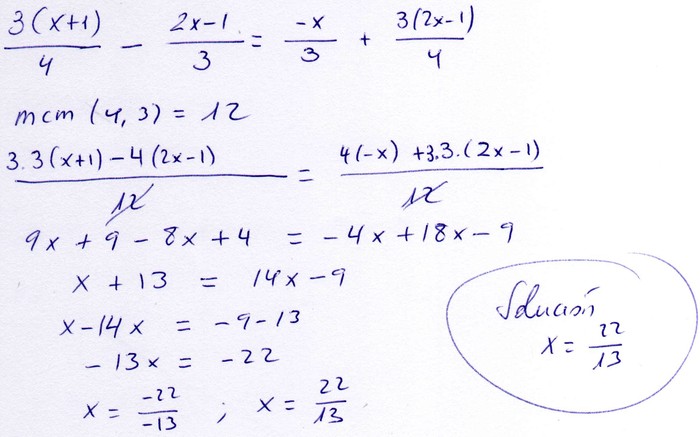 3(x+1)/4 - 2x-1/3 = -x/3 + 3(2x-1)/4
mcm (4,3) = 12
3.3(x+1)-4(2x-1)/12 = 4(-x) +3.3.(2x-1)/12
9x+9-8x+4 = -4x+18x-9
x+13 = 14x-9
x-14x = -9-13
-13x = -22
x = -22/-13 ; x = 22/13
Solución
x = 22/13